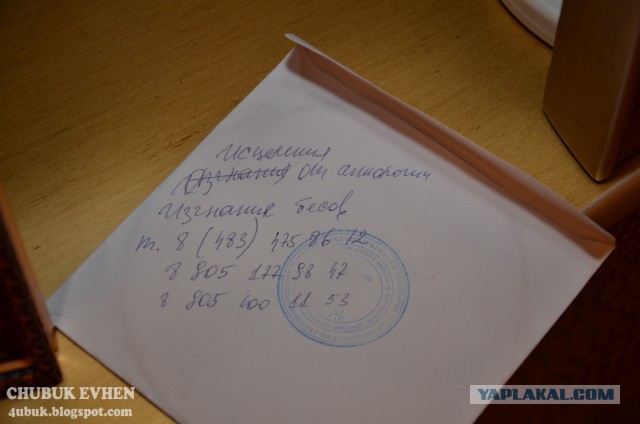 Исцеления
Изгнания от
Изгнание бесов
т. 8 (483) 475 86 12
8 905 177 98 47
8 905 100 11 53
CHUBUK EVHEN
4ubuk.blogspot.com
YAPLAKAL.COM